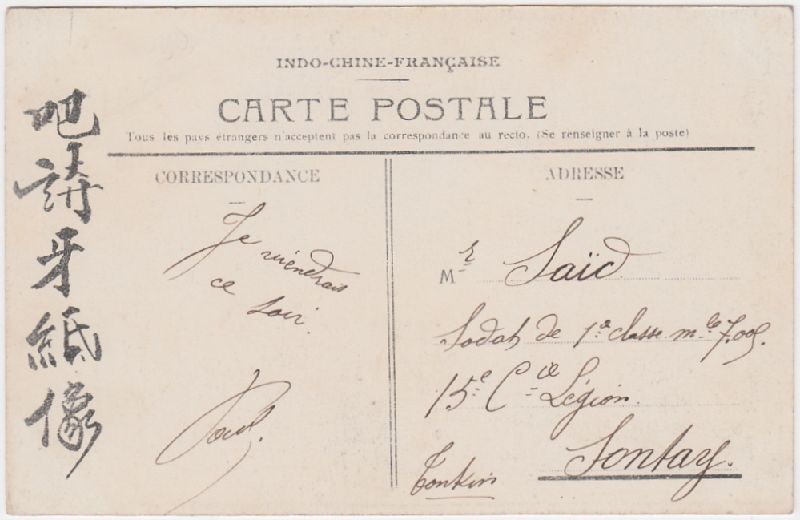 INDO-CHINE-FRANÇAISE
CARTE POSTALE
Tous les pays étrangers n'acceptent pas la correspondance au recto. (Se renseigner à la poste)
CORRESPONDANCE
Je viendrai
ce soir.
Paul.
ADRESSE
Mr Saïd
Soldat de 1e classe mle 7.005.
15e Cie Légion.
Sontay.
Tonkin
吧請牙紙像